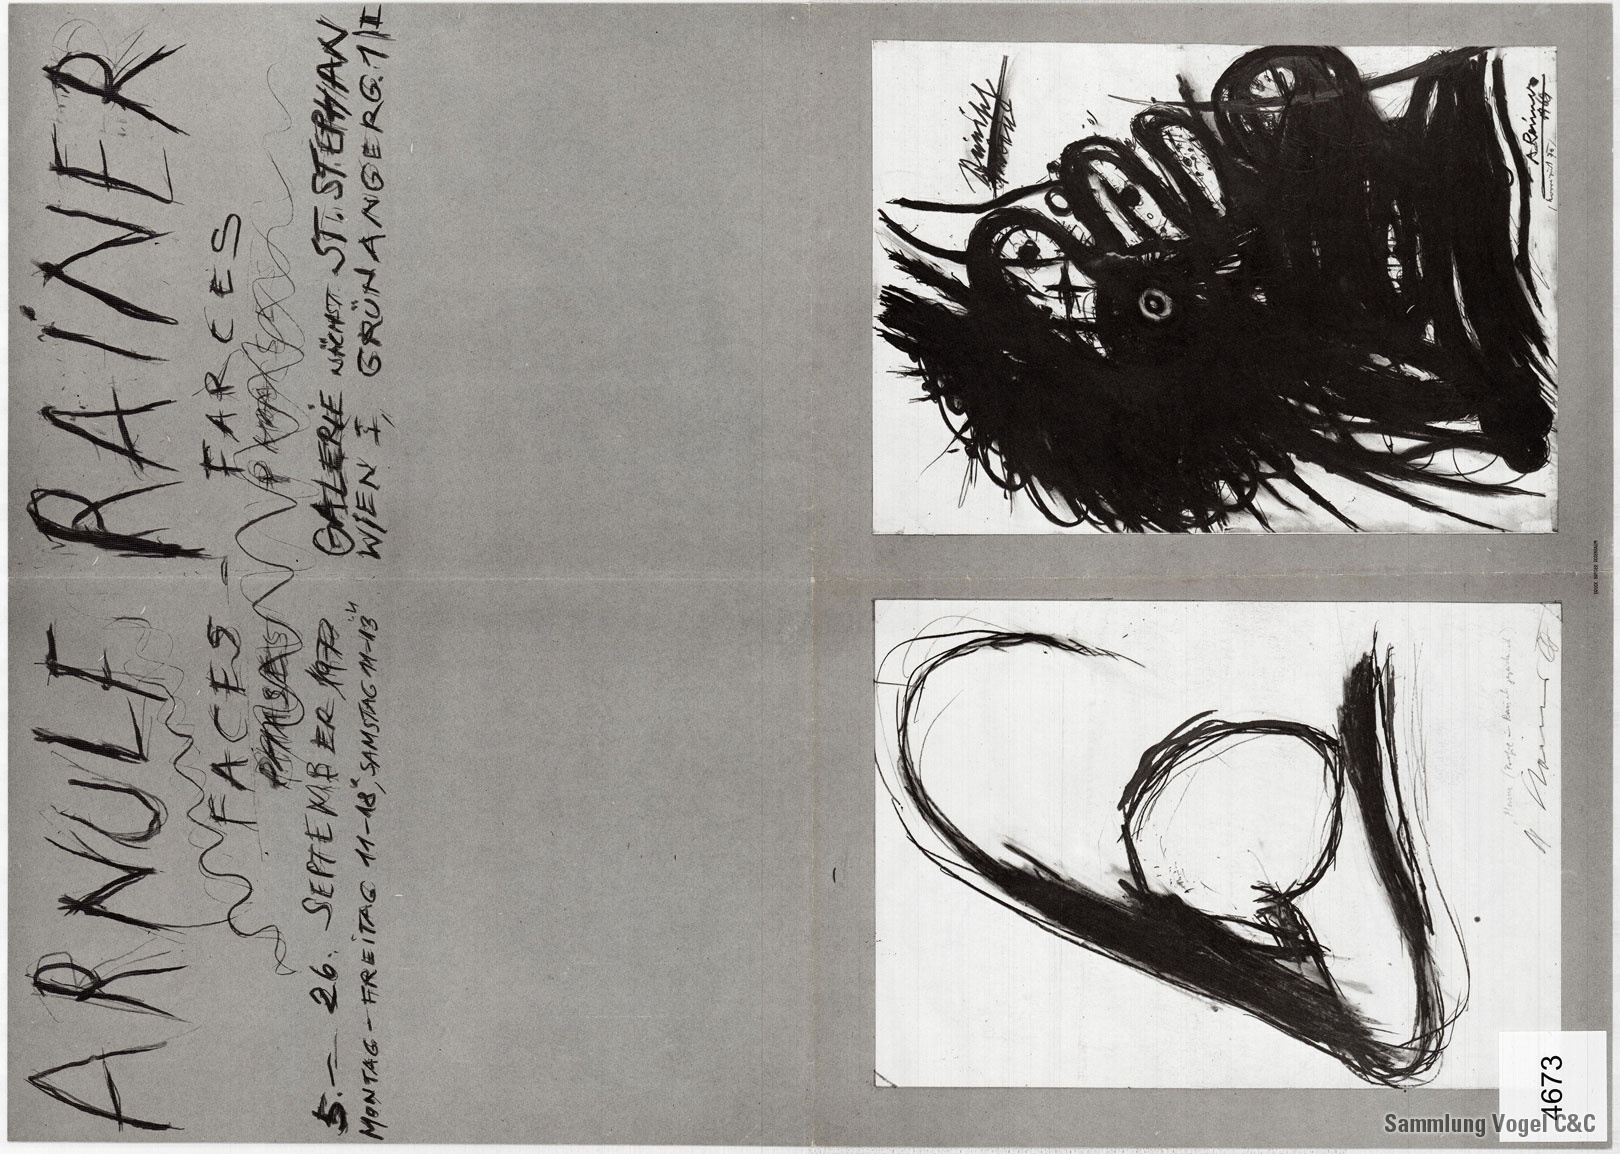 ARNULF RAINER
FACES – FARCES
5. – 26. SEPTEMBER 1970 GALERIE NÄCHST ST. STEPHAN
MONTAG – FREITAG 11–18ʰ, SAMSTAG 11–13ʰ WIEN I, GRÜNANGERG. 1/II
A. Rainer
1969
A Rainer
4673
Sammlung Vogel C&C